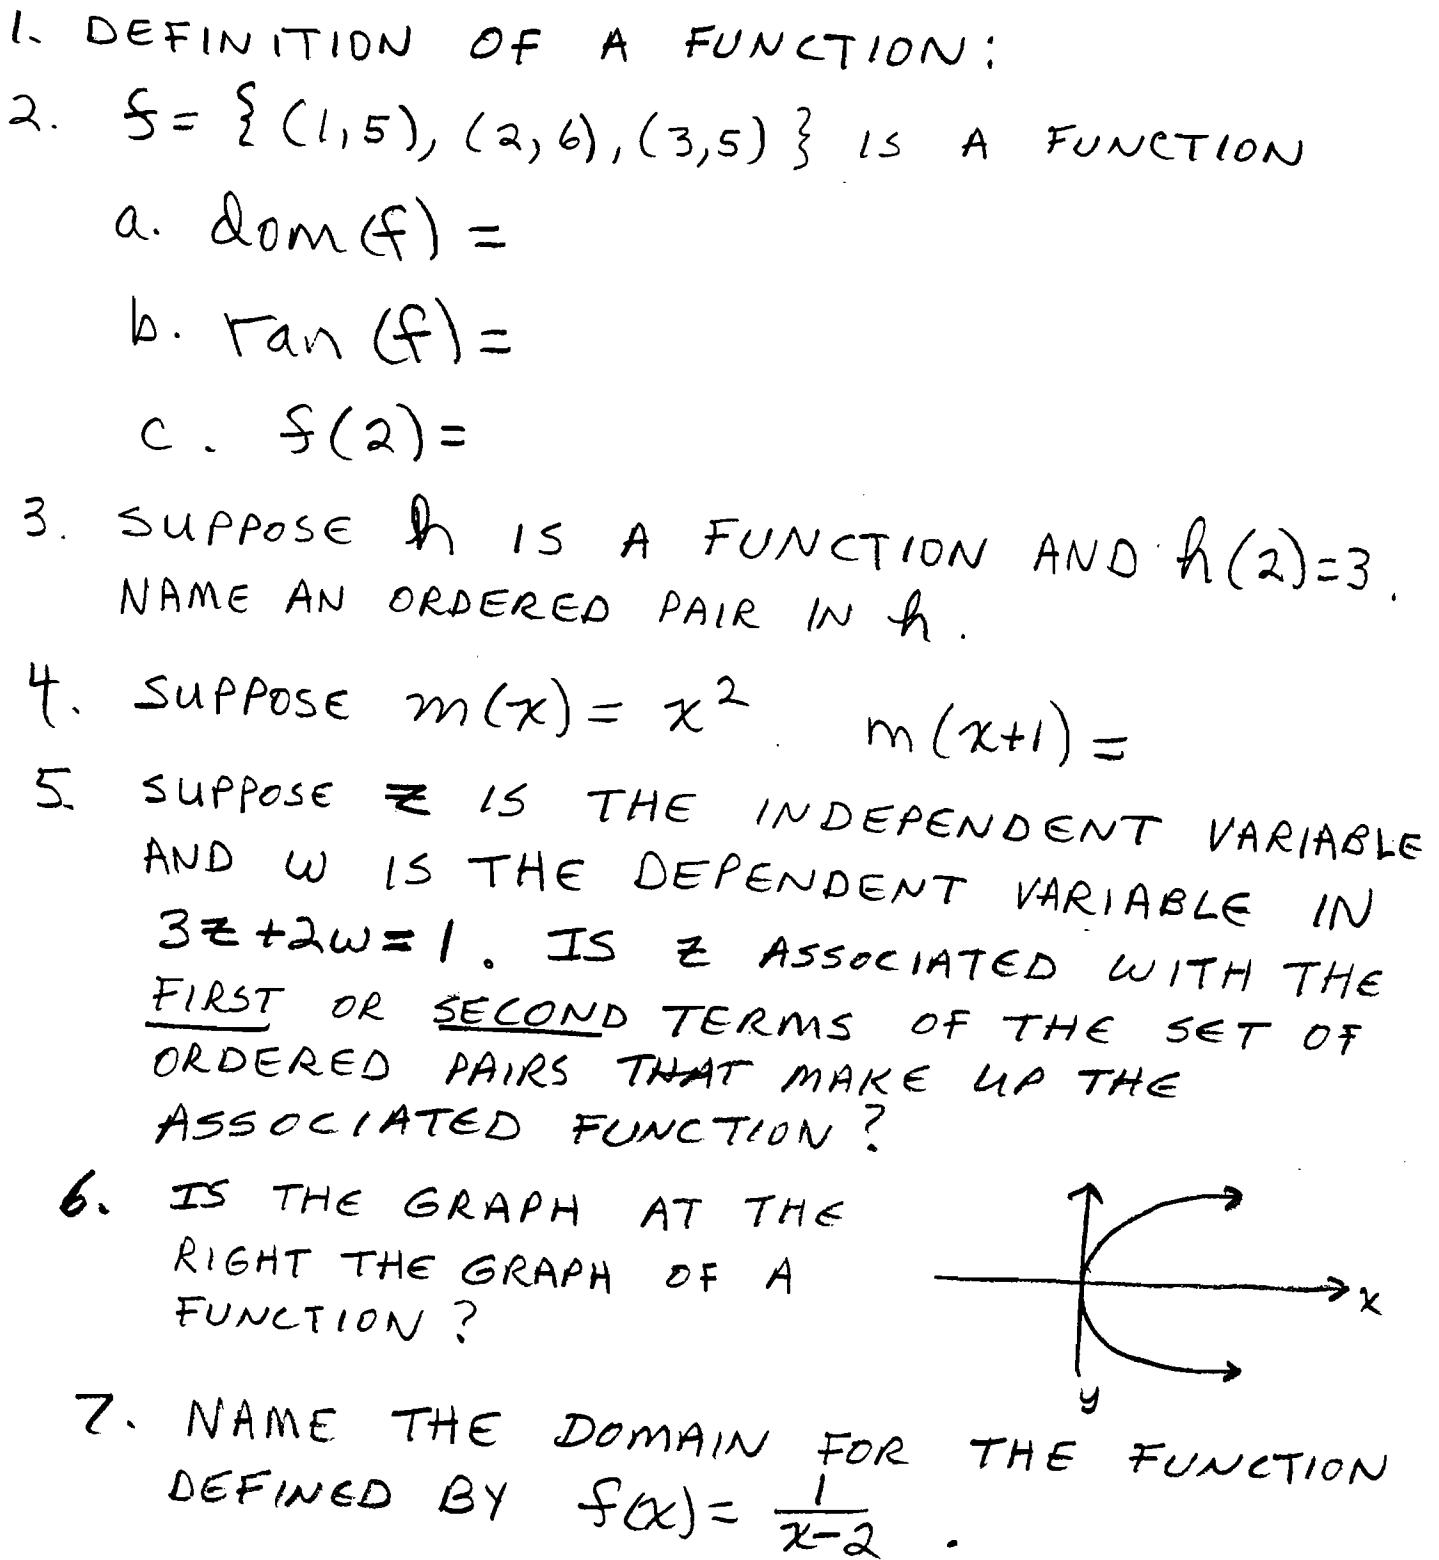 1. DEFINITION OF A FUNCTION:
2. f = { (1,5), (2,6), (3,5) } IS A FUNCTION
a. dom(f) =
b. ran (f) =
c. f(2) =
3. SUPPOSE h IS A FUNCTION AND h(2)=3.
NAME AN ORDERED PAIR IN h.
4. SUPPOSE m(x) = x². m(x+1) =
5. SUPPOSE z IS THE INDEPENDENT VARIABLE
AND w IS THE DEPENDENT VARIABLE IN
3z+2w=1. IS z ASSOCIATED WITH THE
FIRST OR SECOND TERMS OF THE SET OF
ORDERED PAIRS THAT MAKE UP THE
ASSOCIATED FUNCTION?
6. IS THE GRAPH AT THE
RIGHT THE GRAPH OF A
FUNCTION?
x
y
7. NAME THE DOMAIN FOR THE FUNCTION
DEFINED BY f(x) = 1/(x-2).